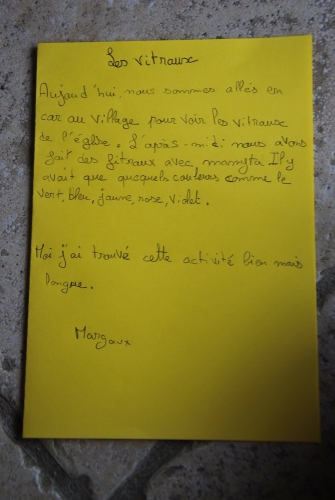 Les vitraux
Aujourd'hui, nous sommes allés en
car au village pour voir les vitraux
de l'église. L'après-midi nous avons
fait des fitraux avec, mamyta. Il y
avait que quequels couleurs comme le
vert, bleu, jaune, rose, violet.
Moi j'ai trouvé cette activité bien mais
longue.
Margaux